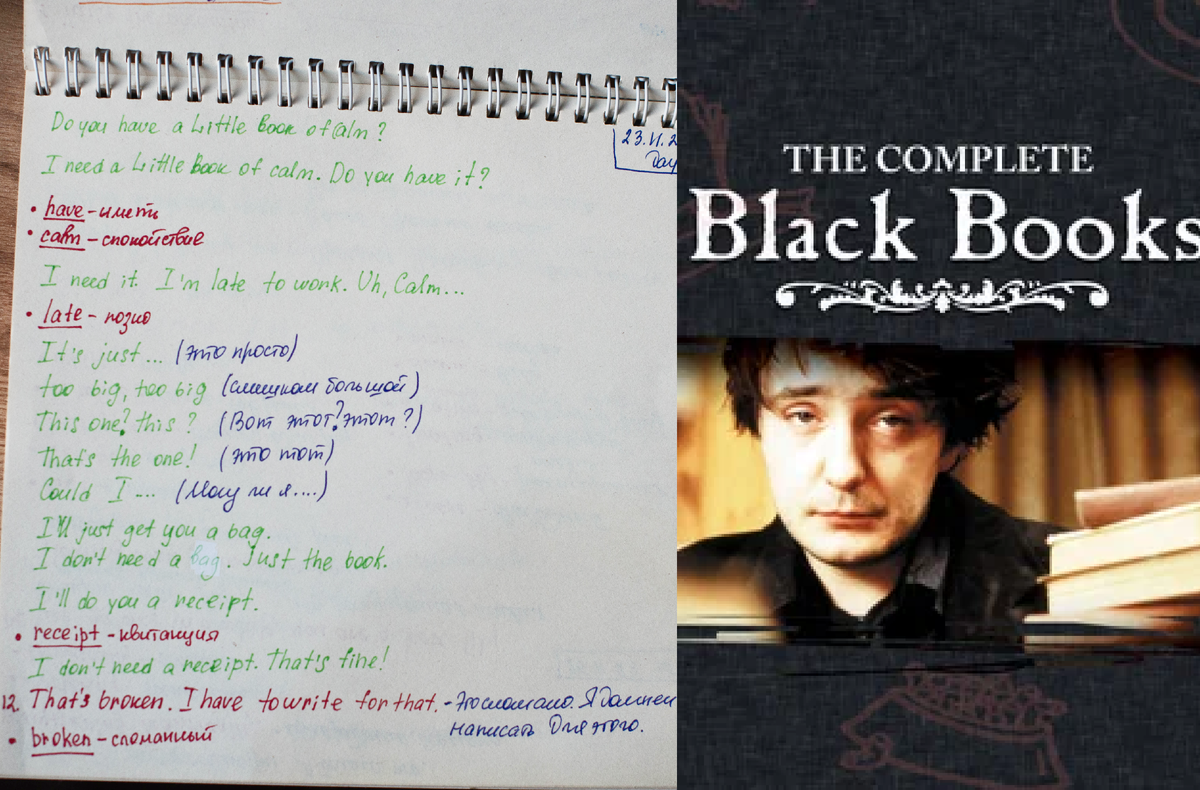 Do you have a Little Book of Calm?
23.11.2
Day
I need a Little Book of calm. Do you have it?
• have - иметь
• calm - спокойствие
I need it. I'm late to work. Uh, Calm...
• late - позно
It's just ... (это просто)
too big, too big (слишком большой)
This one? this? (Вот этот? этот?)
That's the one! (это тот)
Could I ... (Могу ли я....)
I'll just get you a bag.
I don't need a bag. Just the book.
I'll do you a receipt.
• receipt - квитанция
I don't need a receipt. That's fine!
12. That's broken. I have to write for that. - Это сломано. Я должен
написать для этого.
• broken - сломанный
THE COMPLETE
Black Books